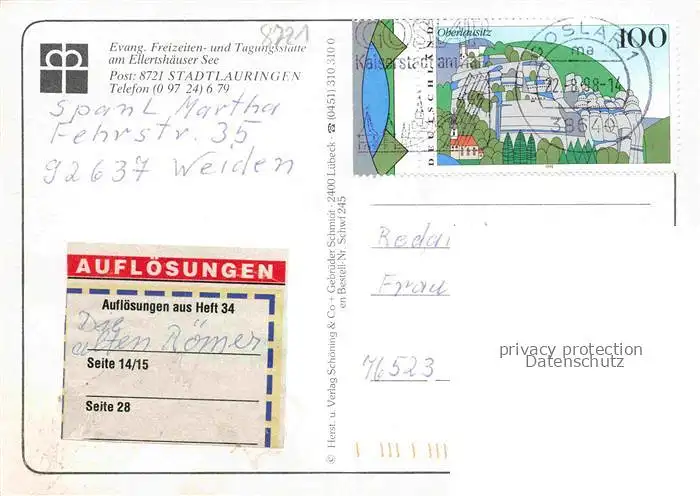 8721
Evang. Freizeiten- und Tagungsstätte
am Ellertshäuser See
Post: 8721 STADTLAURINGEN
Telefon (0 97 24) 6 79
Spanl, Martha
Fehrstr. 35
92637 Weiden
© Herst. u. Verlag Schöning & Co + Gebrüder Schmidt · 2400 Lübeck · ☎ (0451) 310 310 0
en Bestell-Nr. Schwf 245
GOSLAR
Kaiserstadt am
DEUTSCHLAND
Oberlausitz
100
GOSLAR 1
ma
22.-8.98-14
38640
Redai
Frau
76523
privacy protection
Datenschutz
AUFLÖSUNGEN
Auflösungen aus Heft 34
Die
alten Römer
Seite 14/15
Seite 28